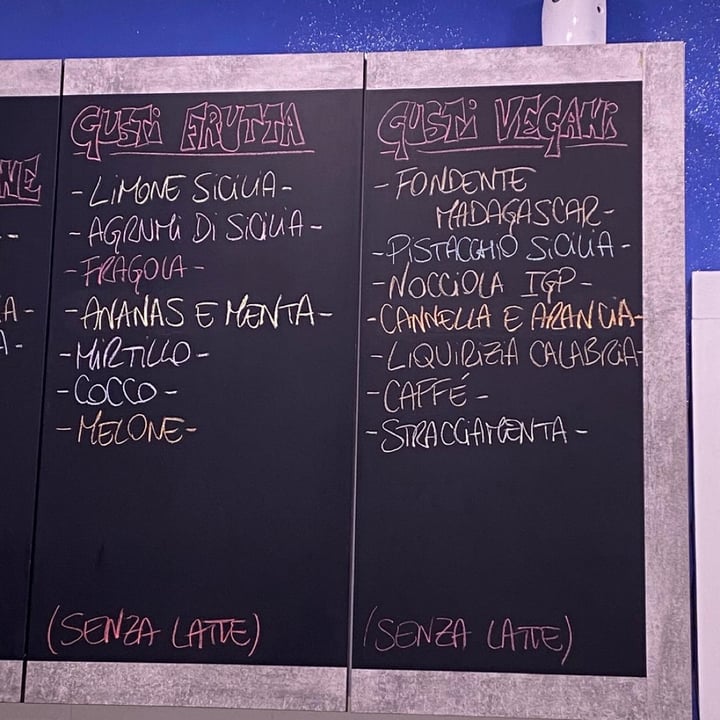 GUSTI FRUTTA
- LIMONE SICILIA -
- AGRUMI DI SICILIA -
- FRAGOLA -
- ANANAS E MENTA -
- MIRTILLO -
- COCCO -
- MELONE -
(SENZA LATTE)
GUSTI VEGANI
- FONDENTE
MADAGASCAR -
- PISTACCHIO SICILIA -
- NOCCIOLA IGP -
- CANNELLA E ARANCIA -
- LIQUIRIZIA CALABRIA -
- CAFFÉ -
- STRACCIAMENTA -
(SENZA LATTE)